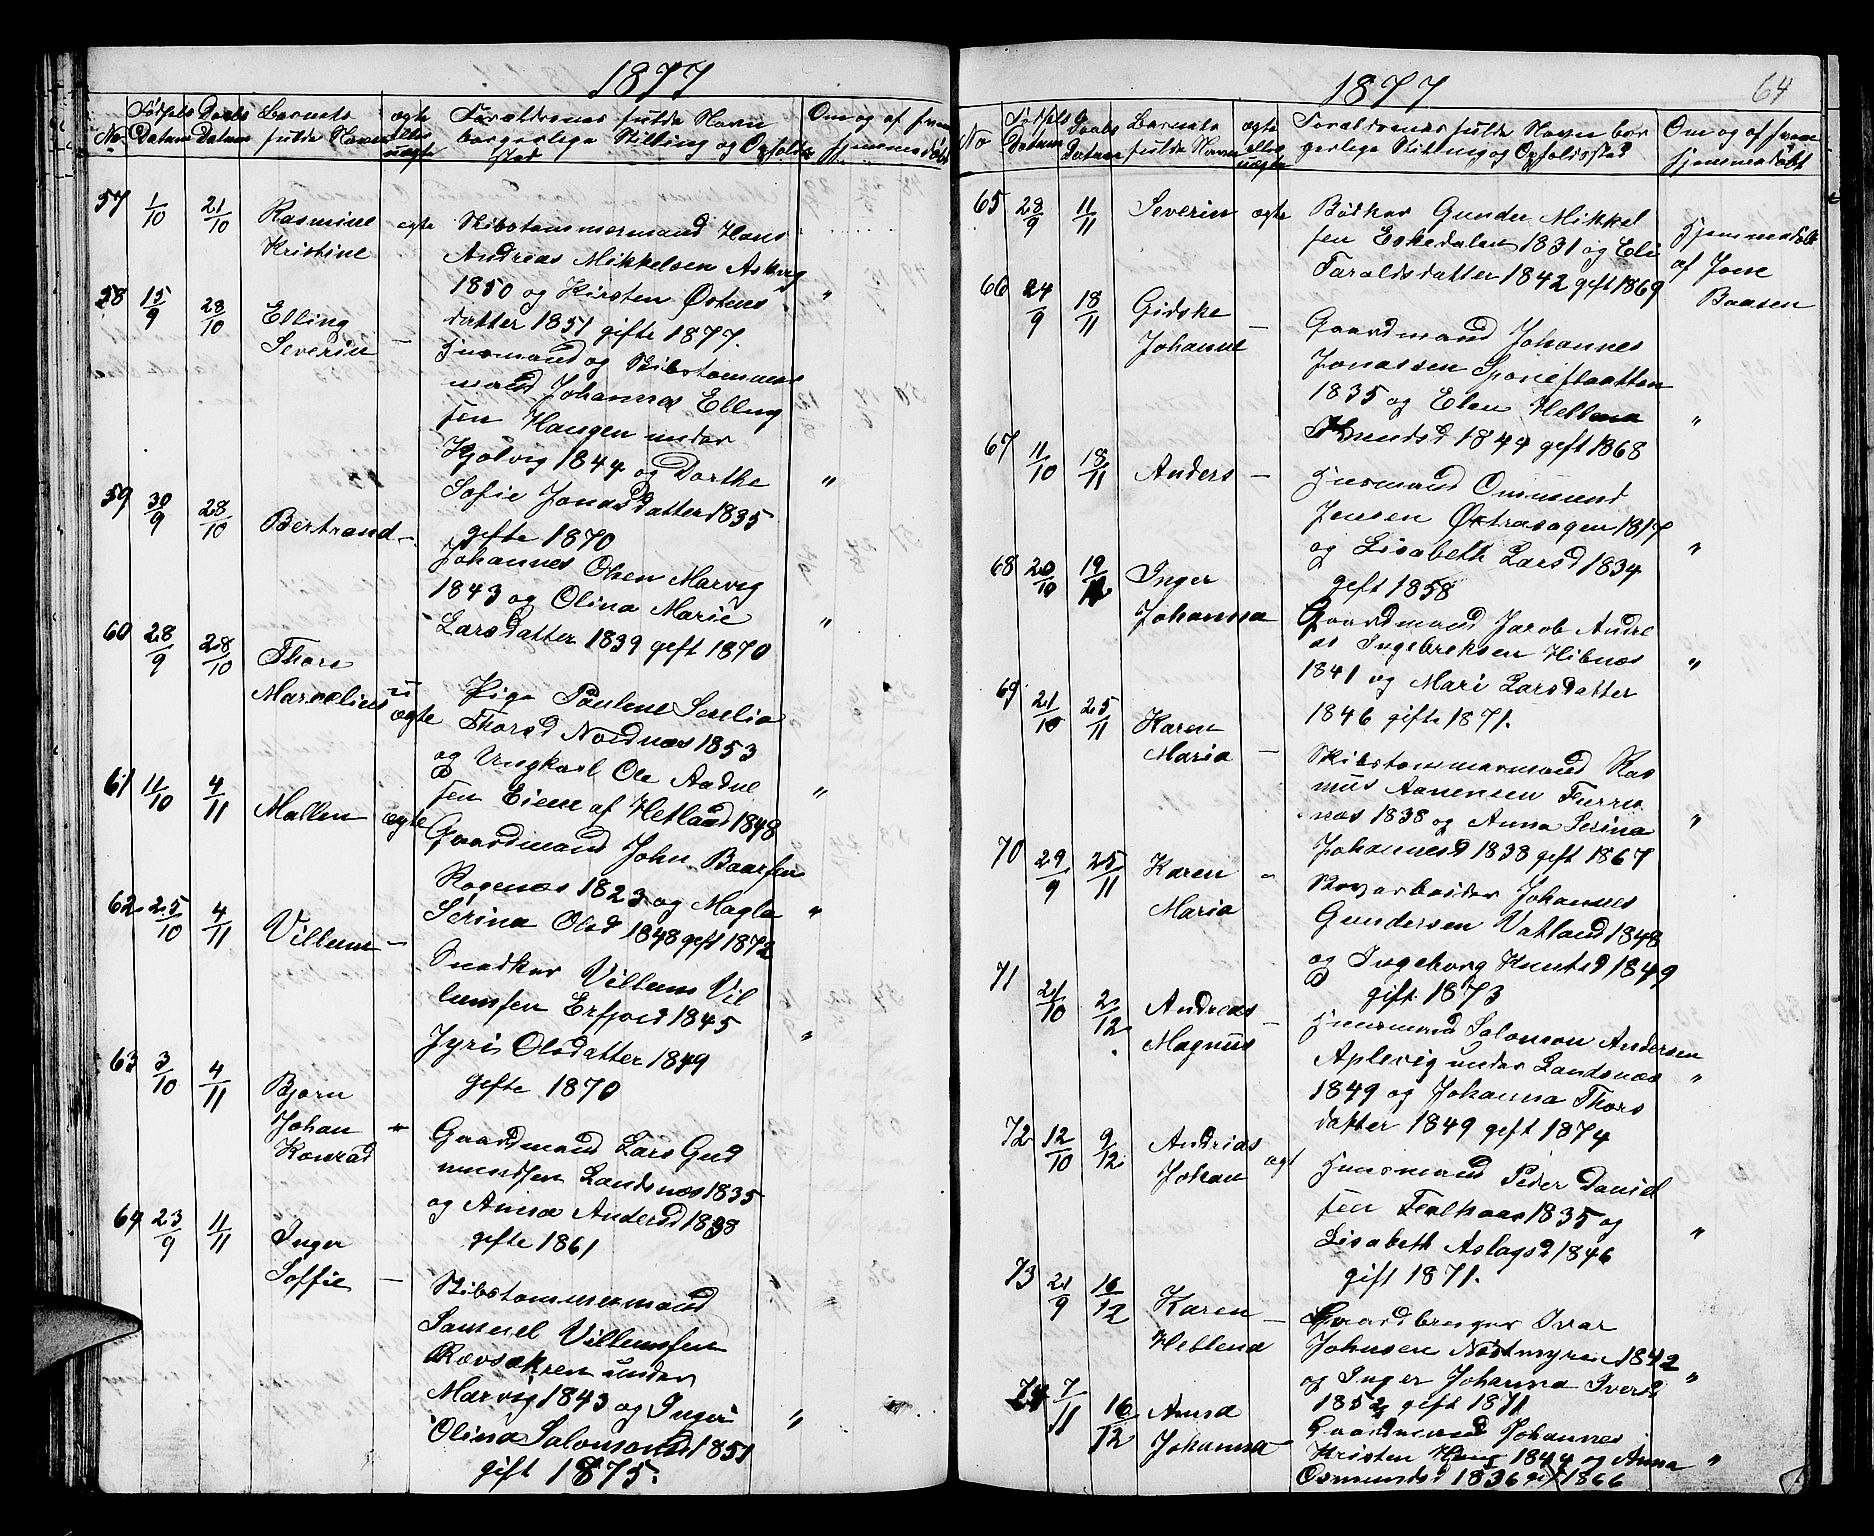 1877
No
Fødsels Datum
Daabs Datum
Barnets fulde Navn
ægte eller uægte
Forældrenes fulde Navn borgerlige Stilling og Opholdssted
Om og af hvem hjemmedøbt
57 1/10 21/10 Rasmine ægte Skibstømmermand Hans
Kristine Andreas Mikkelsen Askvig
1850 og Kirsten Østens "
datter 1851 gifte 1877.
58 15/9 28/10 Elling
Severin – Husmand og Skibstømmer
mand Johannes Elling
sen Haugen under
Hjølvig 1844 og Dorthe
Sofie Jonasdatter 1835 "
gifte 1870
59 30/9 28/10 Bertrand –
Johannes Olsen Marvig
1843 og Olina Marie
Larsdatter 1839 gift 1870 "
60 28/9 28/10 Thore
Marselius u
ægte Pige Pauline Serelia
Thorsd Nordnæs 1853
og Ungkarl Ole Aadne
sen Eiene af Hetland 1848 "
61 11/10 4/11 Mallen ægte
Gaardmand John Baarsen
Rogenæs 1823 og Magla
Serina Olsd 1848 gift 1872 "
62 25/10 4/11 Villum –
Snedker Villum Vil
lumsen Erfjord 1845
Jyri Olsdatter 1849 "
gifte 1870
63 3/10 4/11 Bjørn
Johan "
Konrad
Gaardmand Lars Gud
mundsen Landsnæs 1835
og Anna Andersd 1838
gifte 1861
64 23/9 11/11 Inger
Soffie –
Skibstømmermand
Samuel Villumsen
Rævsakren under
Marvig 1843 og Inger
Olina Salomonsd 1851 "
gift 1875.
1877
64
No
Fødsels Datum
Daabs Datum
Barnets fulde Navn
ægte eller uægte
Forældrenes fulde Navn bor
gerlige Stilling og Opholdssted
Om og af hvem
hjemmedøbt
65 28/9 11/11 Severin ægte Bødker Gunder Mikkel
sen Eskedalen 1831 og Eli
Taraldsdatter 1842 gift 1869
Hjemmedøbt
af Jone
Baasen
66 24/9 18/11 Gidske
Johanne –
Gaardmand Johannes
Jonassen Sponeflaatten
1835 og Elen Hellena "
Amundsd 1844 gift 1868
67 11/10 18/11 Anders –
Husmand Ommund
Jensen Østrasagen 1817
og Lisabeth Larsd 1834 "
gift 1858
68 20/10 19/11 Inger
Johanna –
Gaardmand Jacob Andre
as Ingebretsen Hibnæs
1841 og Mari Larsdatter "
1846 gifte 1871.
69 21/10 25/11 Karen
Maria –
Skibstømmermand Ras
mus Aanensen Furru
næs 1838 og Anna Serina "
Johannesd 1838 gift 1867
70 29/9 25/11 Karen "
Maria
Johannes
Gundersen Vatland 1848
og Ingeborg Knutsd 1849
gift 1873
71 21/10 2/12 Andreas –
Magnus
Husmand Salomon Andersen
Aplevig under Landsnæs "
1849 og Johanna Thors
datter 1849 gift 1874
72 12/10 9/12 Andrias
Johan ægt
Husmand Peder Daniel
sen 1835 og
Lisabeth Aslagsd 1846 "
gift 1871.
73 21/9 16/12 Karen –
Hellena
Gaardbruger Ivar
Johnsen Nordmyren 1842
og Inger Johanna Iversd "
1852 gift 1871
74 7/11 16/12 Anna
Johanna –
Gaardmand Johannes
Kristen Haug 1844 og Anna "
Osmundsd 1836 gift 1866